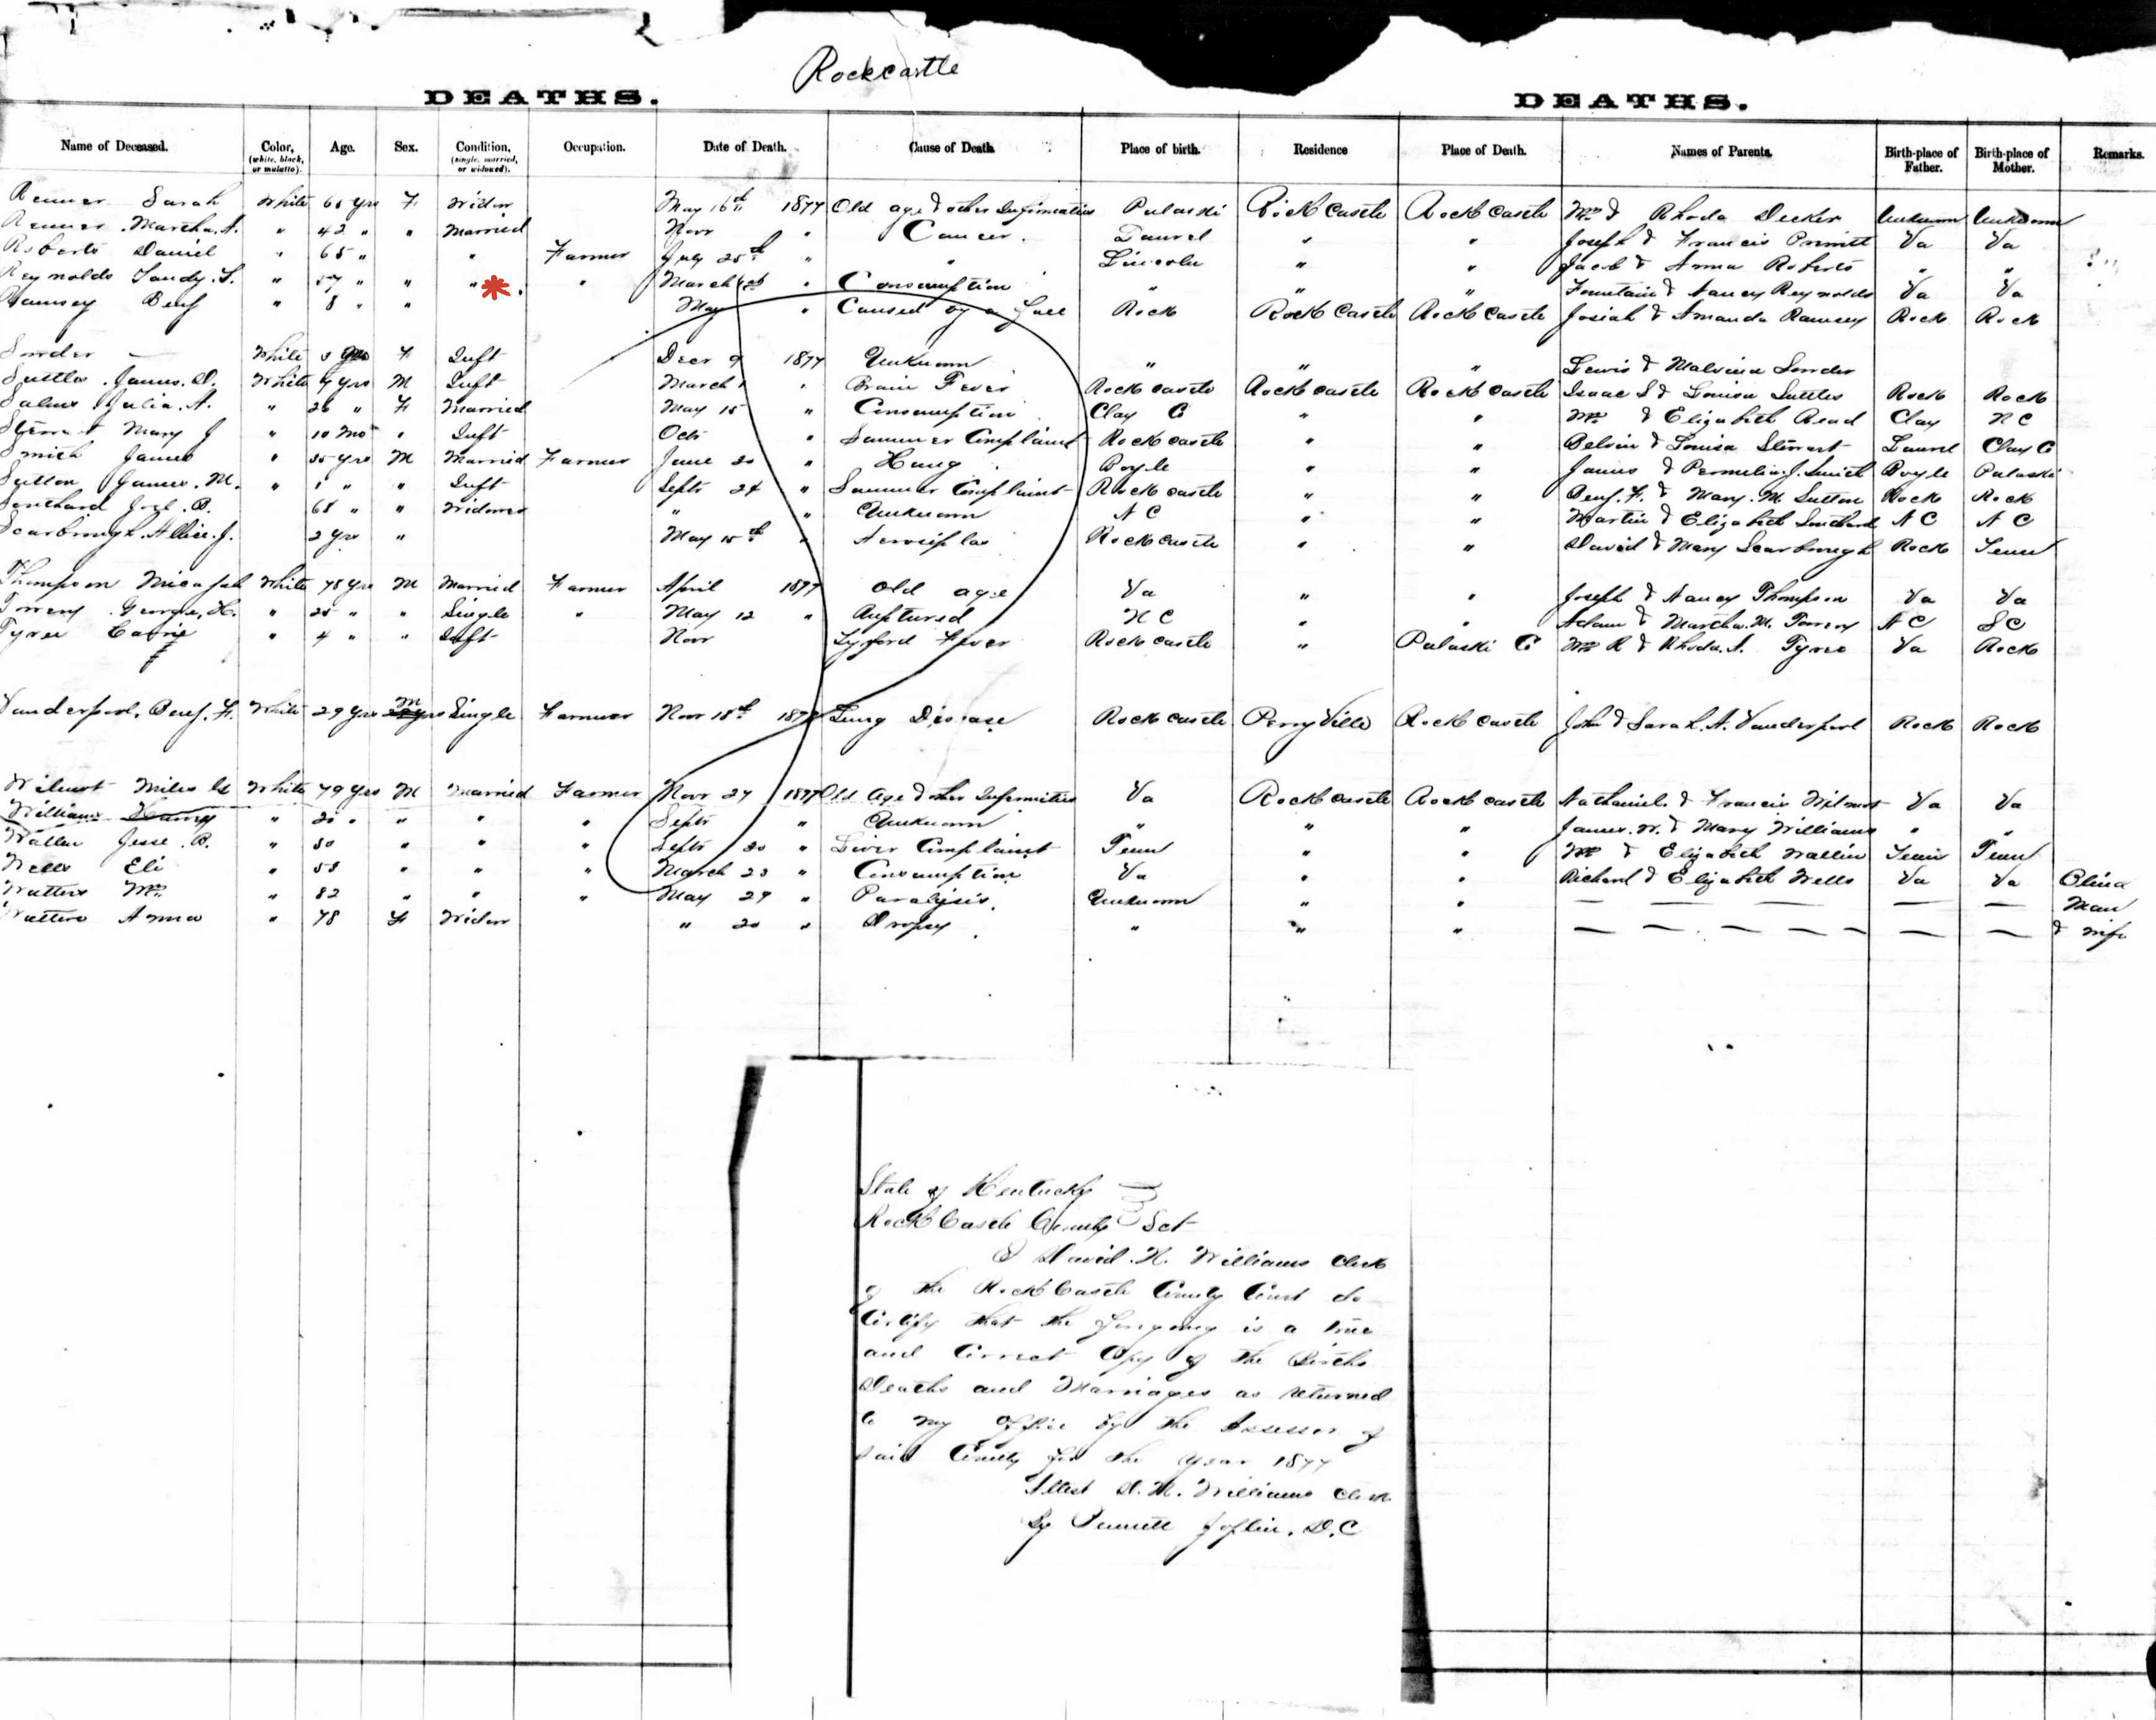 Rockcastle
DEATHS. DEATHS.
Name of Deceased. Color, (white, black, or mulatto). Age. Sex. Condition, (single, married, or widowed). Occupation. Date of Death. Cause of Death. Place of birth. Residence Place of Death. Names of Parents. Birth-place of Father. Birth-place of Mother. Remarks.
Renner Sarah White 65 yrs F Widow May 16th 1877 Old age & other Infirmaties Pulaski Rockcastle Rockcastle Wm & Rhoda Decker Unknown Unknown
Renner Martha A. " 42 " " Married Novr " Cancer. Laurel " " Joseph & Francis Va Va
Roberts Daniel " 65 " " Farmer July 25th " " Lincoln " " Jacob & Anna Roberts " "
Reynolds Tandy " 57 " " " " March " Consumption " " " Fountain & Nancy Reynolds Va Va
Ramsey Benj " 8 " " May " Caused by a fall Rock Rockcastle Rockcastle Josiah & Amanda Ramsey Rock Rock
Sowder — White F Inft Decr 9 1877 Unknown " " " Lewis & Malvina Sowder
Suttles James D. White yrs M Inft March 1 " Brain Fever Rockcastle Rockcastle Rockcastle Isaac S & Louisa Suttles Rock Rock
Julia A. " 26 " F Married May 15 " Consumption Clay Co " " Wm & Elizabeth Read Clay N C
Stewart Mary J " 10 Mo " Inft Octr " Summer Complaint Rockcastle " " Belvin & Louisa Stewart Laurel Clay Co
Smith James " 35 yrs M Married Farmer June 20 " Hung Boyle " " James & Permelia J. Smith Boyle Pulaski
Sutton James M. " 1 " " Inft Septr 24 " Summer Complaint Rockcastle " " Benj. F. & Mary M. Sutton Rock Rock
Southard Joel B. 68 " " Widower " " Unknown N C " " Martin & Elizabeth Southard N C N C
Scarbrough Allie J. 2 yrs " May 15th " Rockcastle " " David & Mary Scarbrough Rock Tenn
Thompson Micajah White 78 yrs M Married Farmer April 1877 Old age Va " " Joseph & Nancy Thompson Va Va
George H. " 25 " " Single " May 12 " Ruptured N C " " Adam & Martha M. N C S C
Tyree " 4 " " Inft Novr Tyford Fever Rockcastle " Pulaski Co Wm R & Rhoda A. Tyree Va Rock
Vanderpool, Benj. F. White 29 yrs M Single Farmer Novr 18th 1877 Lung Disease Rockcastle Perryville Rockcastle John & Sarah A. Vanderpool Rock Rock
Wilmot Miles White 79 yrs M Married Farmer Novr 27 1877 Old Age & other Infirmities Va Rockcastle Rockcastle Nathaniel & Francis Wilmot Va Va
Williams " 20 " " " " Septr Unknown " " " James W. & Mary Williams " "
Wallin Jesse B. " 50 " " " Septr 20 " Liver Complaint Tenn " " Wm & Elizabeth Wallin Tenn Tenn
Wells Eli " 53 " " " March 23 " Consumption Va " " Richard & Elizabeth Wells Va Va
Watters Wm " 82 " " " May 29 " Paralysis. Unknown " " — — — — — — Man
Watters Anna " 78 F Widow " 20 " Dropsy " " " — — — — — — — & wife
State of Kentucky
Rock Castle County Sct
I David N. Williams Clerk
of the Rock Castle County Court do
Certify that the foregoing is a true
and Correct Copy of the Births
Deaths and Marriages as returned
to my office by the Assessor of
said County for the Year 1877
Attest D. N. Williams Clerk
By Joplin, D.C